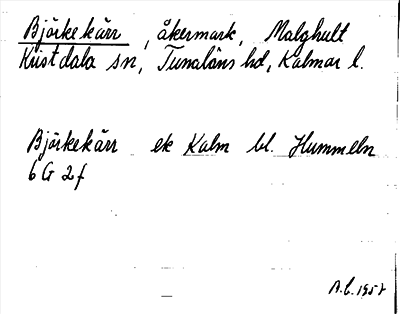 Björkekärr, åkermark, Malghult
Kristdala sn, Tunaläns hd, Kalmar l.
Björkekärr ek Kalm bl. Hummeln
6 G 2 f